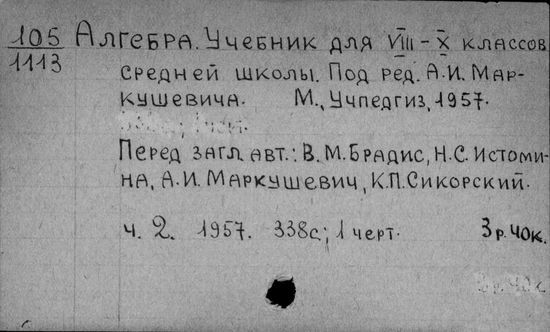 105 Алгебра. Учебник для VIII – X классов
1113 средней школы. Под ред. А.И. Мар-
кушевича. М., Учпедгиз, 1957.
Перед загл. авт.: В.М. Брадис, Н.С. Истоми-
на, А.И. Маркушевич, К.П. Сикорский.
ч. 2. 1957. 338с; 1 черт. 3 р. 40к.